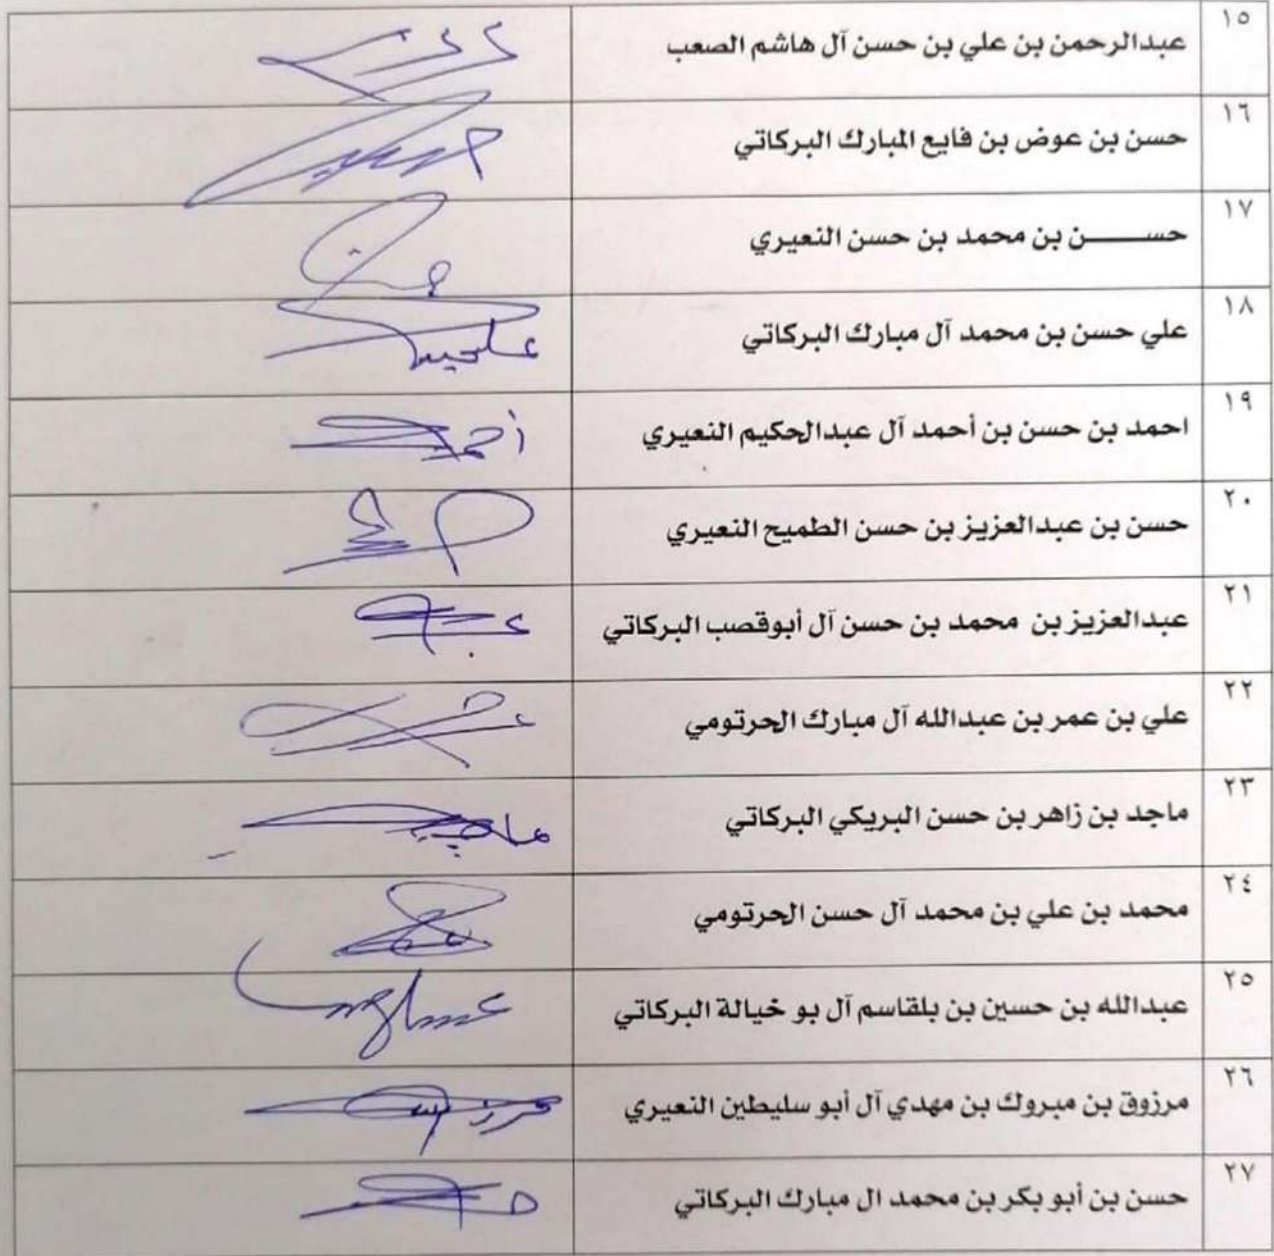 ١٥ عبدالرحمن بن علي بن حسن آل هاشم الصعب
١٦ حسن بن عوض بن فايع المبارك البركاتي
١٧ حســـــن بن محمد بن حسن النعيري
١٨ علي حسن بن محمد آل مبارك البركاتي
١٩ احمد بن حسن بن أحمد آل عبدالحكيم النعيري أحمد
٢٠ حسن بن عبدالعزيز بن حسن الطميح النعيري
٢١ عبدالعزيز بن محمد بن حسن آل أبوقصب البركاتي
٢٢ علي بن عمر بن عبدالله آل مبارك الحرتومي
٢٣ ماجد بن زاهر بن حسن البريكي البركاتي ماجد
٢٤ محمد بن علي بن محمد آل حسن الحرتومي
٢٥ عبدالله بن حسين بن بلقاسم آل بو خيالة البركاتي
٢٦ مرزوق بن مبروك بن مهدي آل أبو سليطين النعيري
٢٧ حسن بن أبو بكر بن محمد ال مبارك البركاتي